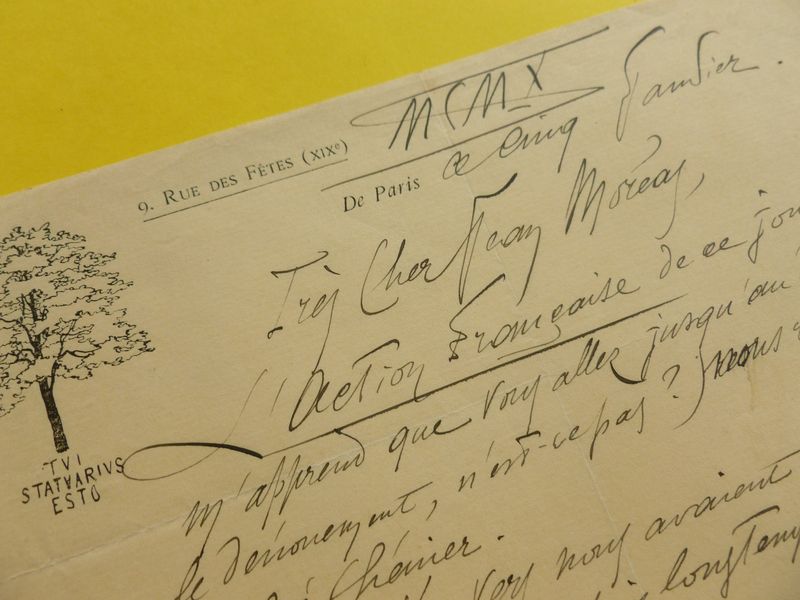 MCMX
9. RUE DES FÊTES (XIXe)
De Paris ce Cinq Janvier.
Très Cher Jean Moréas,
L'Action Française de ce jou
m'apprend que vous allez jusqu'au
le dénouement, n'est-ce pas? nous
Chénier.
vers nous avaient
longtemp
TVI
STATVARIVS
ESTO